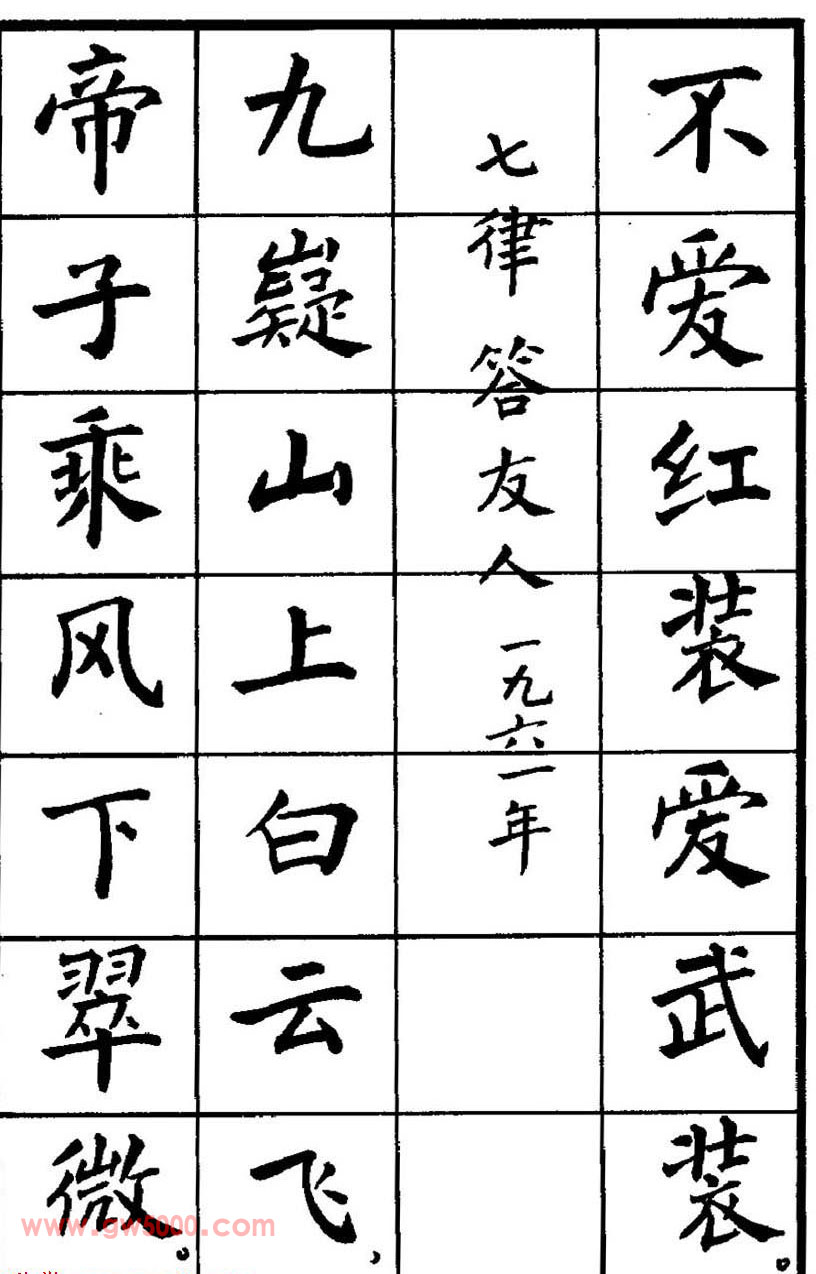 不爱红装爱武装。
七律 答友人 一九六一年
九嶷山上白云飞，
帝子乘风下翠微。
www.gw5000.com